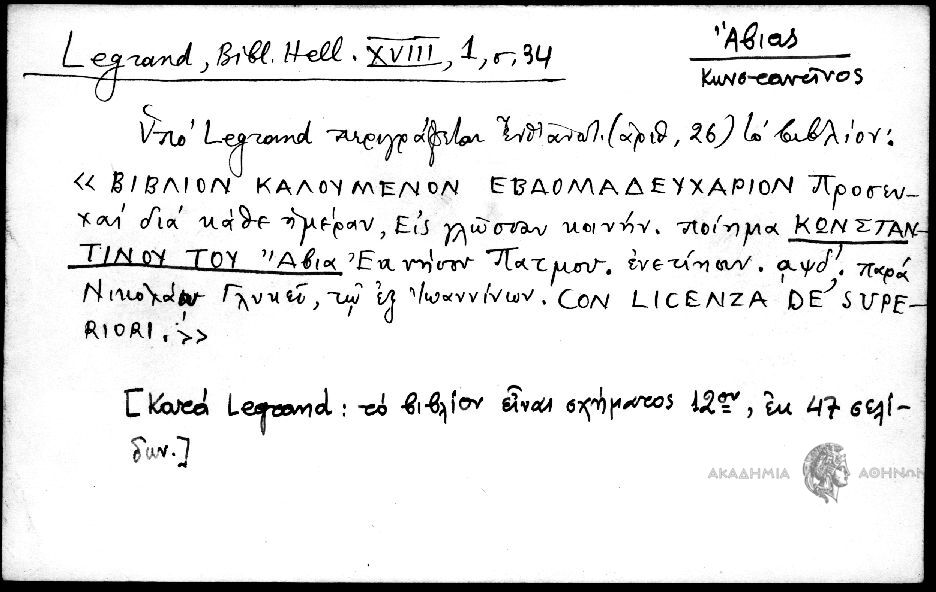 Legrand, Bibl. Hell. XVIII, 1, σ. 34
Ἄβιας
Κωνσταντῖνος
Ὑπό Legrand περιγράφεται (ἀριθ, 26) τό βιβλίον:
«ΒΙΒΛΙΟΝ ΚΑΛΟΥΜΕΝΟΝ ΕΒΔΟΜΑΔΕΥΧΑΡΙΟΝ Προσευ-
χαί διά κάθε ἡμέραν, Εἰς γλῶσσαν κοινήν. ποίημα ΚΩΝΣΤΑΝ-
ΤΙΝΟΥ ΤΟΥ Ἄβια Ἐκ νήσου Πατμου. ἐνετίησιν. αψδ΄. παρά
Νικολάῳ Γλυκεῖ, τῷ ἐξ Ἰωαννίνων. CON LICENZA DE' SUPE-
RIORI.»
[Κατά Legrand: τό βιβλίον εἶναι σχήματος 12ου, ἐκ 47 σελί-
δων.]
ΑΚΑΔΗΜΙΑ ΑΘΗΝΩΝ